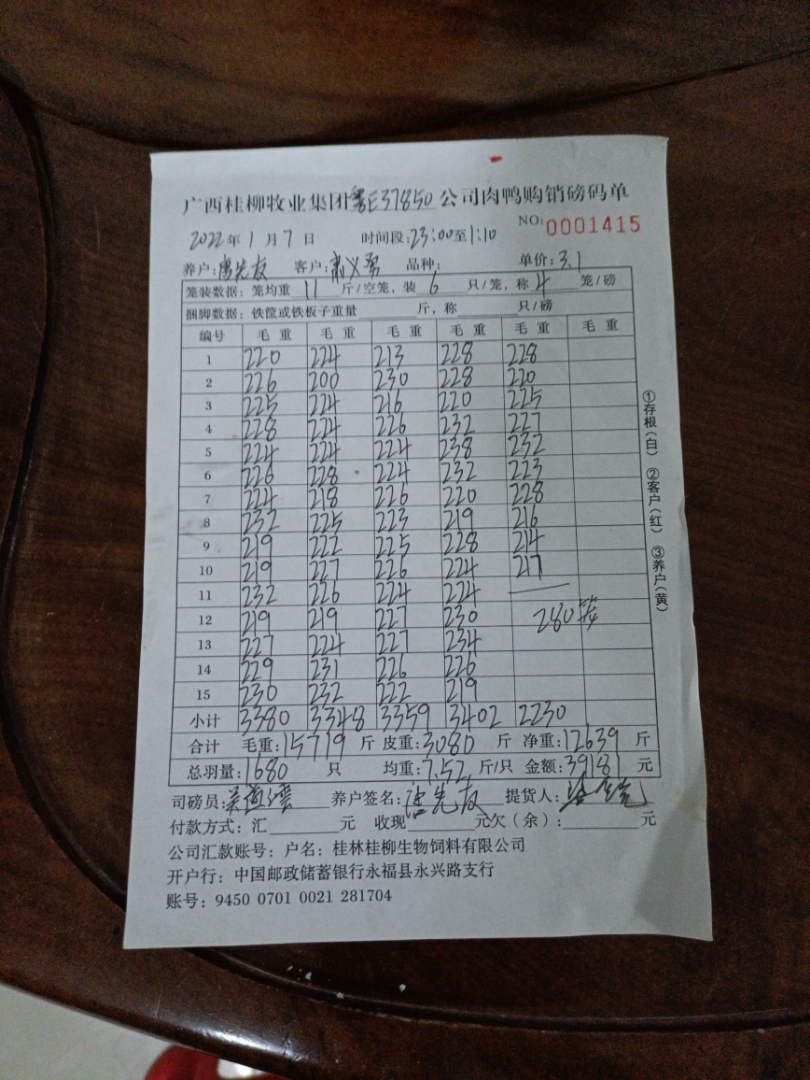 广西桂柳牧业集团粤E37850公司肉鸭购销磅码单
NO: 0001415
2022年1月7日 时间段:23:00至1:10
养户:唐先友 客户: 品种: 单价:3.1
笼装数据:笼均重11斤/空笼,装6只/笼,称4笼/磅
捆脚数据:铁筐或铁板子重量 斤,称 只/磅
编号 毛重 毛重 毛重 毛重 毛重 毛重
1 220 224 213 228 228
2 226 200 230 228 220
3 225 224 216 220 225
4 228 224 226 232 227
5 224 224 224 238 232
6 226 228 224 232 223
7 224 218 226 220 228
8 232 225 223 219 216
9 219 222 225 228 214
10 219 227 226 224 217
11 232 226 224 224
12 219 219 227 230 280笼
13 227 224 227 234
14 229 231 226 226
15 230 232 222 219
小计 3380 3348 3359 3402 2230
合计 毛重:15719斤 皮重:3080斤 净重:12639斤
总羽量:1680只 均重:7.52斤/只 金额:39181元
司磅员: 养户签名:唐先友 提货人:
付款方式:汇 元 收现 元欠(余): 元
公司汇款账号:户名:桂林桂柳生物饲料有限公司
开户行:中国邮政储蓄银行永福县永兴路支行
账号:9450 0701 0021 281704
①存根(白) ②客户(红) ③养户(黄)